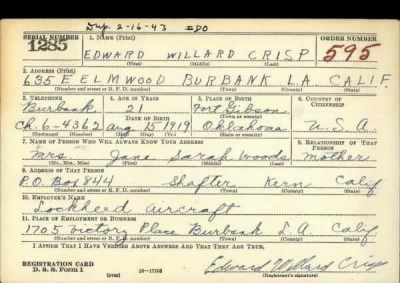 Dup. 2-16-43 EDO
SERIAL NUMBER 1. NAME (Print) ORDER NUMBER
1285 EDWARD WILLARD CRISP 595
(First) (Middle) (Last)
2. ADDRESS (Print)
635 E ELMWOOD BURBANK L.A. CALIF.
(Number and street or R. F. D. number) (Town) (County) (State)
3. TELEPHONE 4. AGE IN YEARS 5. PLACE OF BIRTH 6. COUNTRY OF CITIZENSHIP
Burbank 21 Fort Gibson
DATE OF BIRTH (Town or county)
Ch. 6-4362 Aug 15 1919 Oklahoma U.S.A.
(Exchange) (Number) (Mo.) (Day) (Yr.) (State or country)
7. NAME OF PERSON WHO WILL ALWAYS KNOW YOUR ADDRESS 8. RELATIONSHIP OF THAT PERSON
Mrs. Jane Sarah Woods mother
(Mr., Mrs., Miss) (First) (Middle) (Last)
9. ADDRESS OF THAT PERSON
P.O. Box 844 Shafter Kern Calif
(Number and street or R. F. D. number) (Town) (County) (State)
10. EMPLOYER'S NAME
Lockheed aircraft
11. PLACE OF EMPLOYMENT OR BUSINESS
1705 Victory Place Burbank L.A. Calif
(Number and street or R. F. D. number) (Town) (County) (State)
I AFFIRM THAT I HAVE VERIFIED ABOVE ANSWERS AND THAT THEY ARE TRUE.
REGISTRATION CARD Edward Willard Crisp
D. S. S. Form 1 (over) (Registrant's signature)